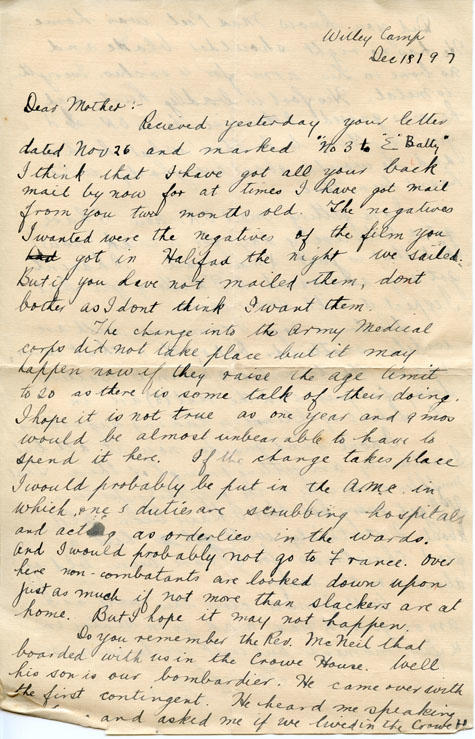 Witley Camp
Dec 18 1 9 7
Dear Mother:-
Recieved yesterday your letter
dated Nov 26 and marked "No 3 to "E" Batty"
I think that I have got all your back
mail by now for at times I have got mail
from you two months old. The negatives
I wanted were the negatives of the film you
got in Halifad the night we sailed.
But if you have not mailed them, dont
bother as I dont think I want them.
The change into the Army Medical
corps did not take place but it may
happen now if they raise the age limit
to 20 as there is some talk of their doing.
I hope it is not true as one year and 9 mos
would be almost unbearable to have to
spend it here. If the change takes place
I would probably be put in the A.M.C. in
which one's duties are scrubbing hospitals
and acting as orderlies in the wards.
And I would probably not go to France. Over
here non-combatants are looked down upon
just as much if not more than slackers are at
home. But I hope it may not happen.
Do you remember the Rev. McNeil that
boarded with us in the Crowe House. Well
his son is our bombardier. He came over with
the first contingent. He heard me speaking
and asked me if we lived in the Crowe H